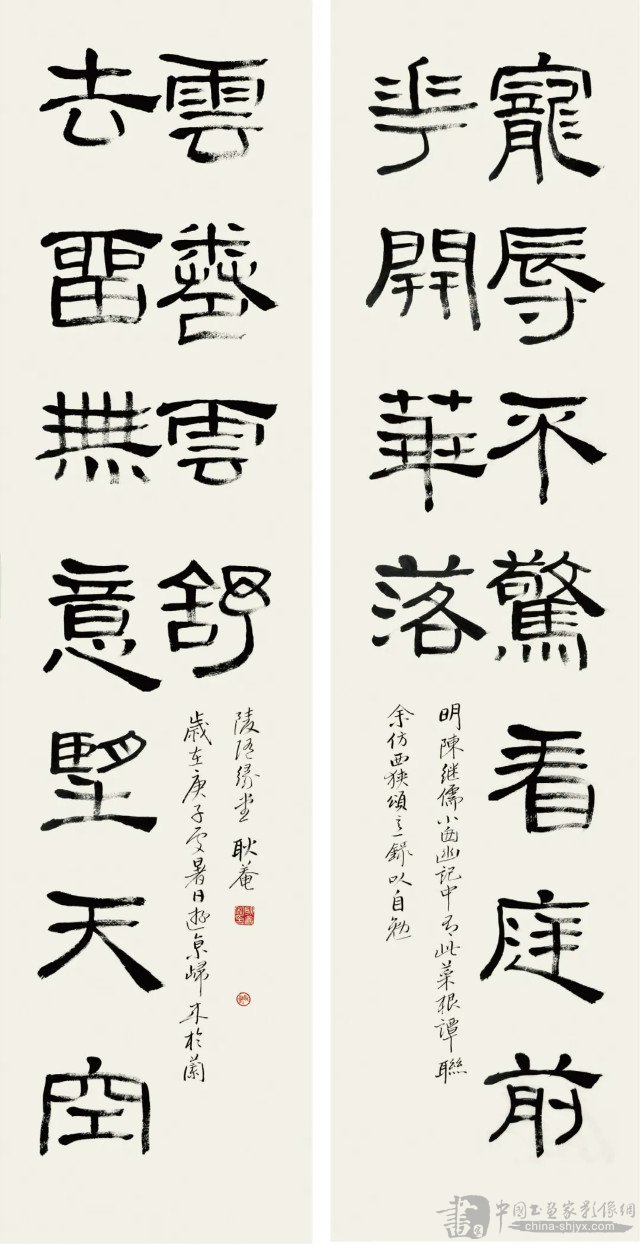 寵辱不驚看庭前
花開華落
明陳继儒小窗幽記中有此菜根譚聯
余仿西狹頌録以自勉
去留無意望天空
雲卷雲舒
歲在庚子處暑日遊京歸来於蘭
陵缘堂 耿菴
書
中國书画家影像網
china-shjyx.com